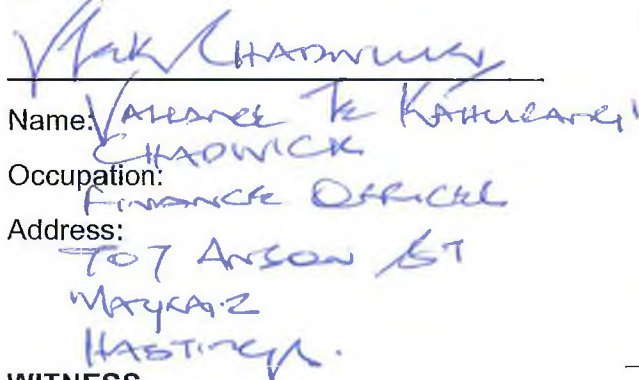 Chadwick
Name: Te Kahurangi
CHADWICK
Occupation:
FINANCE OFFICER
Address:
707 ANSON ST
HASTINGS.
WITNESS